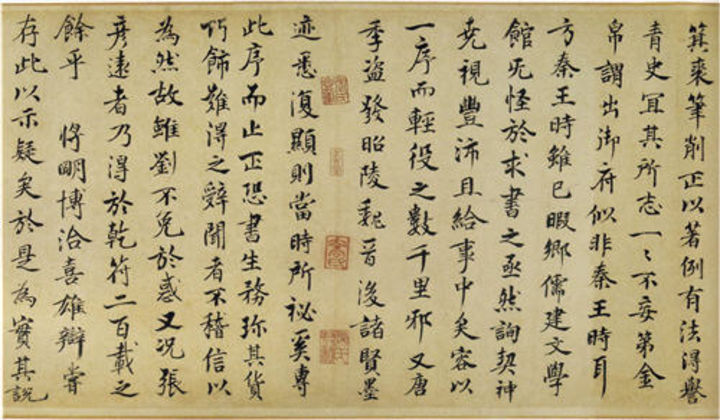 箕裘筆削正以著例有法得譽
青史冝其所志一々不妄第金
帛謂出御府似非秦王時耳
方秦王時雖已暇鄉儒建文學
館旡怪於求書之亟然詢契神
尭視豐沛且給事中矣容以
一序而輕役之數千里邪又唐
季盗發昭陵魏晋後諸賢墨
迹悉復顯則當時所祕奚專
此序而止正恐書生務珎其貨
巧飾難得之辭聞者不稽信以
為然故雖劉不免於惑又况張
彦遠者乃得於乾符二百載之
餘乎 將明博洽喜雄辯嘗
存此以示疑矣於是為實其說